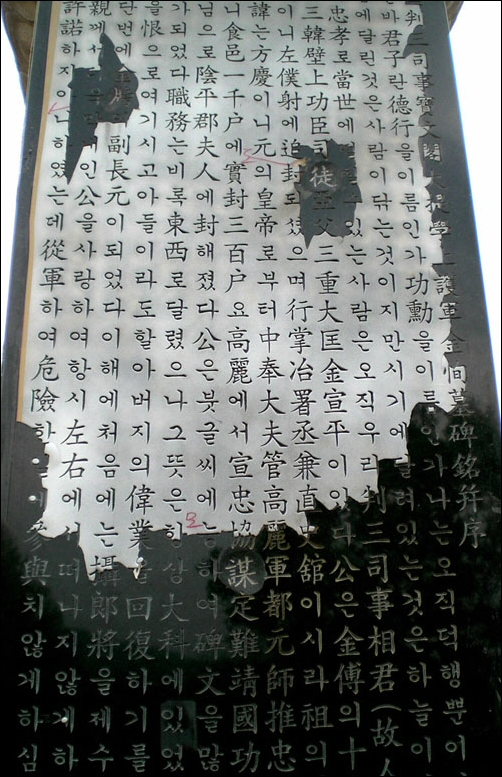 判三司事寶文閣大提學上護軍金恂墓碑銘并序
는바君子란德行을이름인가功勳을이름인가나는오직덕행뿐이
에달린것은사람이닦는것이지만시기에달려있는것은하늘이
忠孝로當世에 있는사람은오직우리判三司事相君(故人
三韓壁上功臣司徒 父三重大匡金宣平이있다公은金傅의十
이니左僕射에追封되었으며行掌冶署丞兼直史舘이시라祖의
諱는方慶이니元의皇帝로부터中奉大夫管高麗軍都元帥推忠
니食邑一千户에實封三百户요高麗에서宣忠協謀定難靖國功
님으로陰平郡夫人에封해졌다公은붓글씨에능하여碑文을많
가되었다職務는비록東西로달렸으나그뜻은항상大科에있었
을恨으로여기시고아들이라도할아버지의偉業을回復하기를
단번에 版 副長元이되었다이해에처음에는攝郎將을제수
親께서 인公을사랑하여항시左右에서떠나지않게하
許諾하지아니하였는데從軍하여危險한일에參與치않게하심